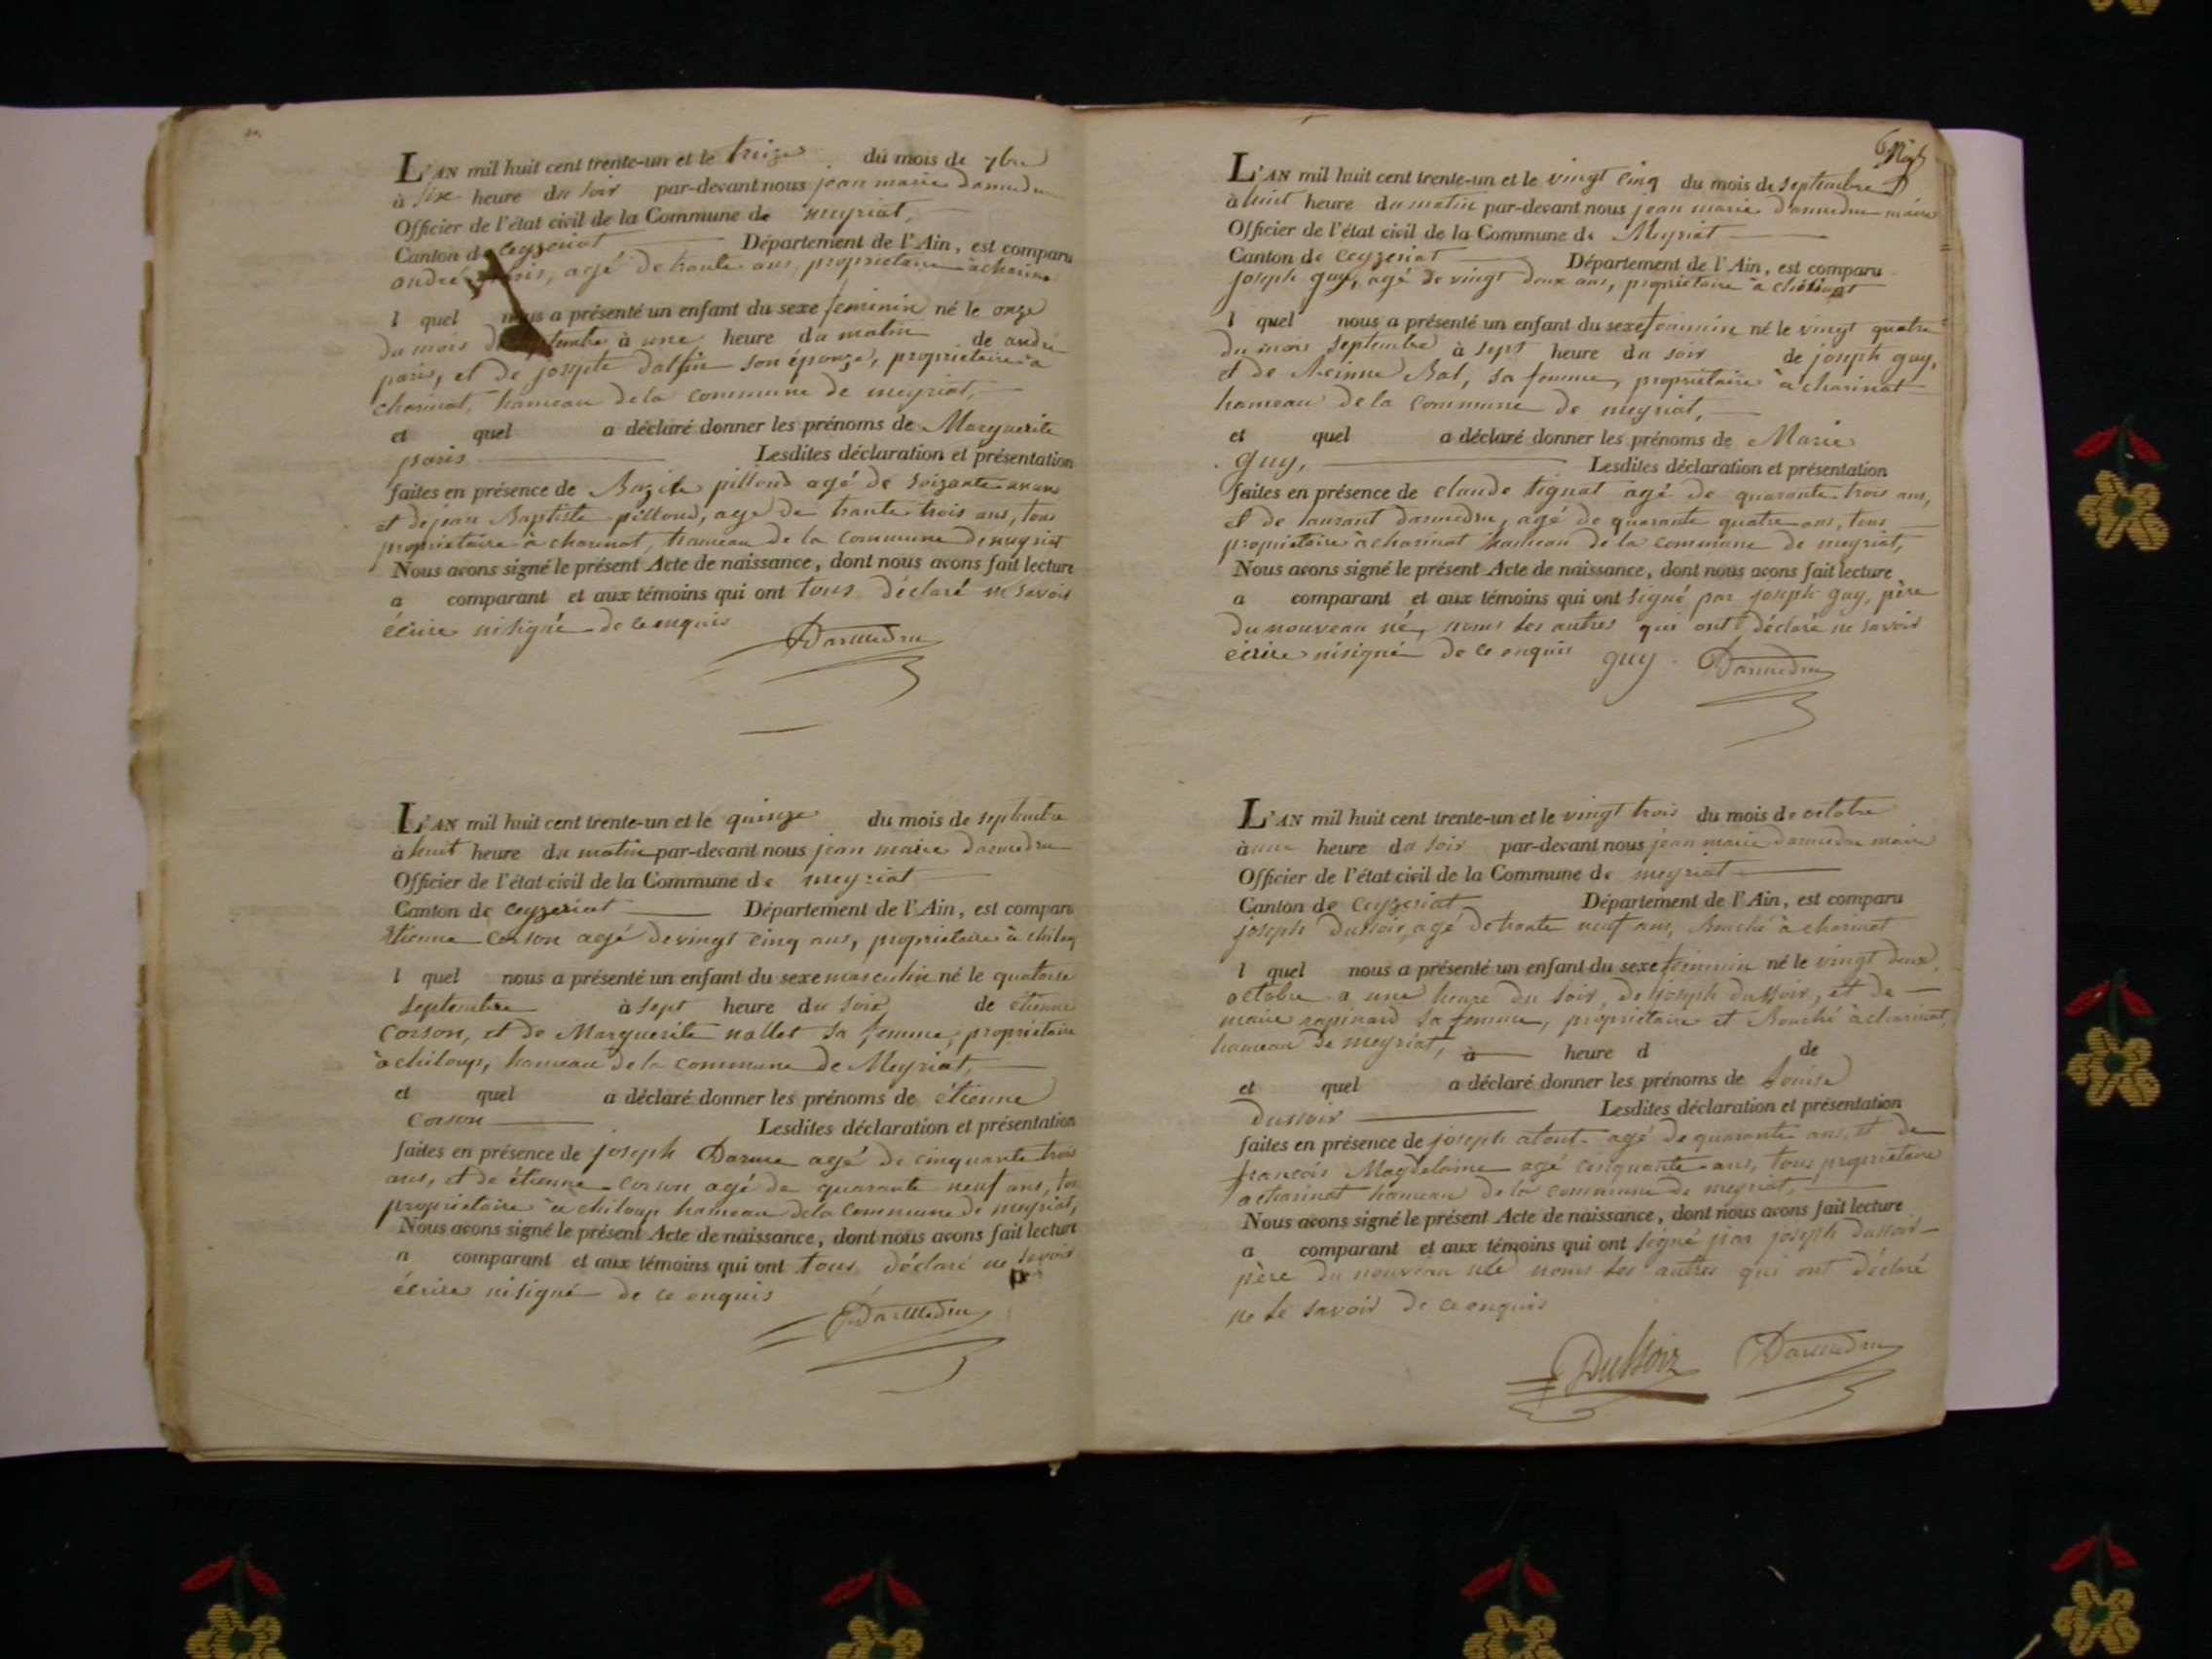 L'AN mil huit cent trente-un et le treize du mois de 7bre
à six heure du soir par-devant nous jean marie darmedru
Officier de l'état civil de la Commune de meyriat,
Canton de Ceyzeriat Département de l'Ain, est comparu
andré paris, agé de trante ans, propriétaire à charinat
l quel nous a présenté un enfant du sexe feminin né le onze
du mois de septembre à une heure du matin de andré
paris, et de josepte dalfin son épouze, propriétaire à
charinat, hameau de la commune de meyriat,
et quel a déclaré donner les prénoms de Marguerite
paris Lesdites déclaration et présentation
faites en présence de pilloud agé de soizante
et de jean Baptiste pilloud, agé de trante trois ans, tous
propriétaire à charinat, hameau de la commune de meyriat
Nous avons signé le présent Acte de naissance, dont nous avons fait lecture
a comparant et aux témoins qui ont tous déclaré ne savoir
écrire ni signé de ce enquis
Darmedru
L'AN mil huit cent trente-un et le quinze du mois de septembre
à huit heure du matin par-devant nous jean marie darmedru
Officier de l'état civil de la Commune de meyriat
Canton de Ceyzeriat Département de l'Ain, est comparu
Etienne Corson agé de vingt cinq ans, propriétaire à chiloup
l quel nous a présenté un enfant du sexe masculin né le quatorse
septembre à sept heure du soir de étienne
Corson, et de Marguerite nallet sa femme, propriétaire
à chiloup, hameau de la commune de Meyriat,
et quel a déclaré donner les prénoms de étienne
Corson Lesdites déclaration et présentation
faites en présence de joseph Darme agé de cinquante trois
ans, et de étienne corson agé de quarante neuf ans, tous
propriétaire à chiloup hameau de la commune de meyriat,
Nous avons signé le présent Acte de naissance, dont nous avons fait lecture
a comparant et aux témoins qui ont tous déclaré ne savoir
écrire ni signé de ce enquis
Darmedru
L'AN mil huit cent trente-un et le vingt cinq du mois de septembre
à huit heure du matin par-devant nous jean marie darmedru maire
Officier de l'état civil de la Commune de Meyriat
Canton de Ceyzeriat Département de l'Ain, est comparu
joseph guy, agé de vingt deux ans, propriétaire à
l quel nous a présenté un enfant du sexe feminin né le vingt quatre
du mois septembre à sept heure du soir de joseph guy,
et de Bal, sa femme, propriétaire à charinat
hameau de la commune de meyriat,
et quel a déclaré donner les prénoms de Marie
guy, Lesdites déclaration et présentation
faites en présence de claude tignat agé de quarante trois ans,
et de laurant darmedru, agé de quarante quatre ans, tous
propriétaire à charinat hameau de la commune de meyriat,
Nous avons signé le présent Acte de naissance, dont nous avons fait lecture
a comparant et aux témoins qui ont signé par joseph guy, père
du nouveau né, nons les autres qui ont déclaré ne savoir
écrire ni signé de ce enquis guy Darmedru
L'AN mil huit cent trente-un et le vingt trois du mois de octobre
à une heure du soir par-devant nous jean marie darmedru maire
Officier de l'état civil de la Commune de meyriat
Canton de Ceyzeriat Département de l'Ain, est comparu
joseph dussoir, agé de trante neuf ans, Bouché à charinat
l quel nous a présenté un enfant du sexe feminin né le vingt deux
octobre a une heure du soir, de joseph dussoir, et de
marie rapinard sa femme, propriétaire et Bouché à charinat
hameau de meyriat, à heure d de
et quel a déclaré donner les prénoms de Louise
dussoir Lesdites déclaration et présentation
faites en présence de joseph agé de quarante ans, et de
francois Magdelaine agé cinquante ans, tous propriétaire
a charinat hameau de la commune de meyriat,
Nous avons signé le présent Acte de naissance, dont nous avons fait lecture
a comparant et aux témoins qui ont signé par joseph dussoir
père du nouveau né nons les autres qui ont déclaré
ne le savoir de ce enquis
Dussoir Darmedru